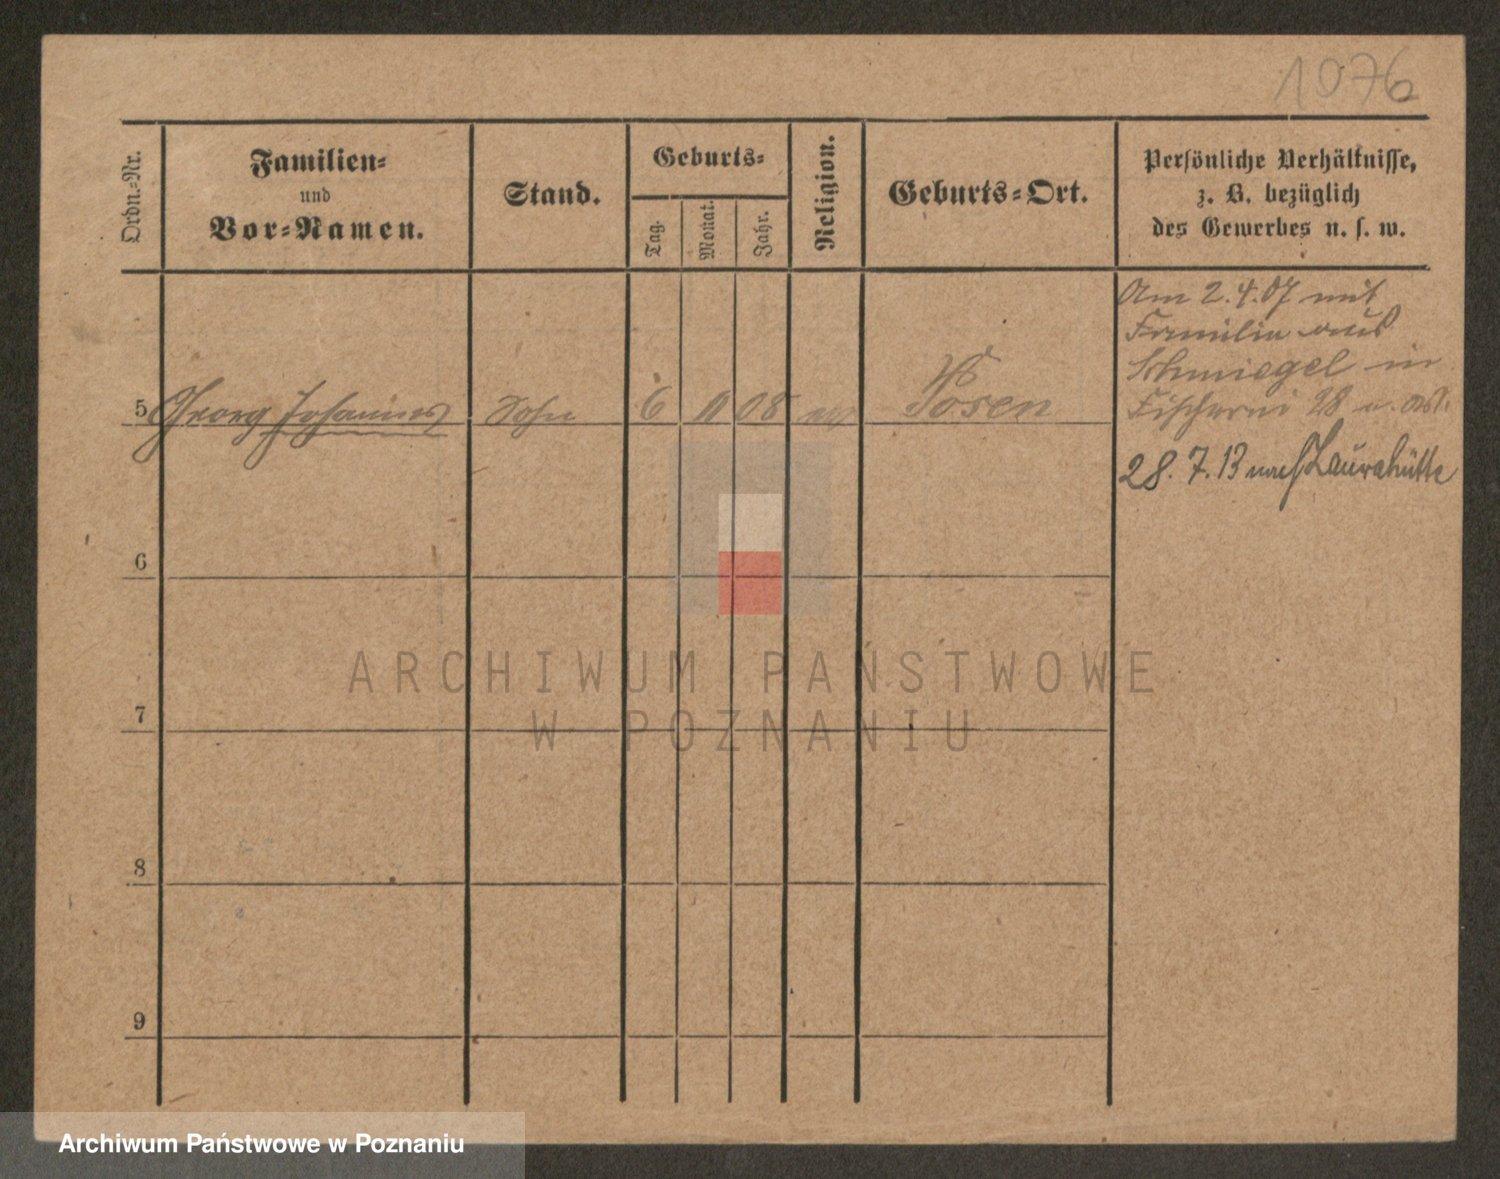 1076
Ordn.-Nr.
Familien-
und
Vor-Namen.
Stand.
Geburts-
Tag.
Monat.
Jahr.
Religion.
Geburts-Ort.
Persönliche Verhältnisse,
z. B. bezüglich
des Gewerbes u. s. w.
5 Georg Johannes Sohn 6 11 08 Posen
Am 2.4.07 mit
Familie aus
Schmiegel in
Fischerei 28 u.
28. 7. 13 nach Laurahütte
6
7
8
9
ARCHIWUM PAŃSTWOWE
W POZNANIU
Archiwum Państwowe w Poznaniu